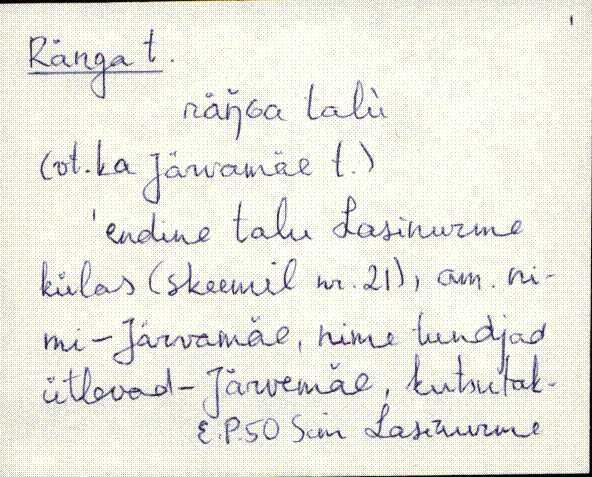 Ränga t.
räŋ̆ɢa talù
(vt. ka Järvamäe t.)
'endine talu Lasinurme
külas (skeemil nr. 21), am. ni-
mi - Järvamäe, nime tundjad
ütlevad - Järvemäe, kutsutak-
E.P. 50 Sim Lasinurme